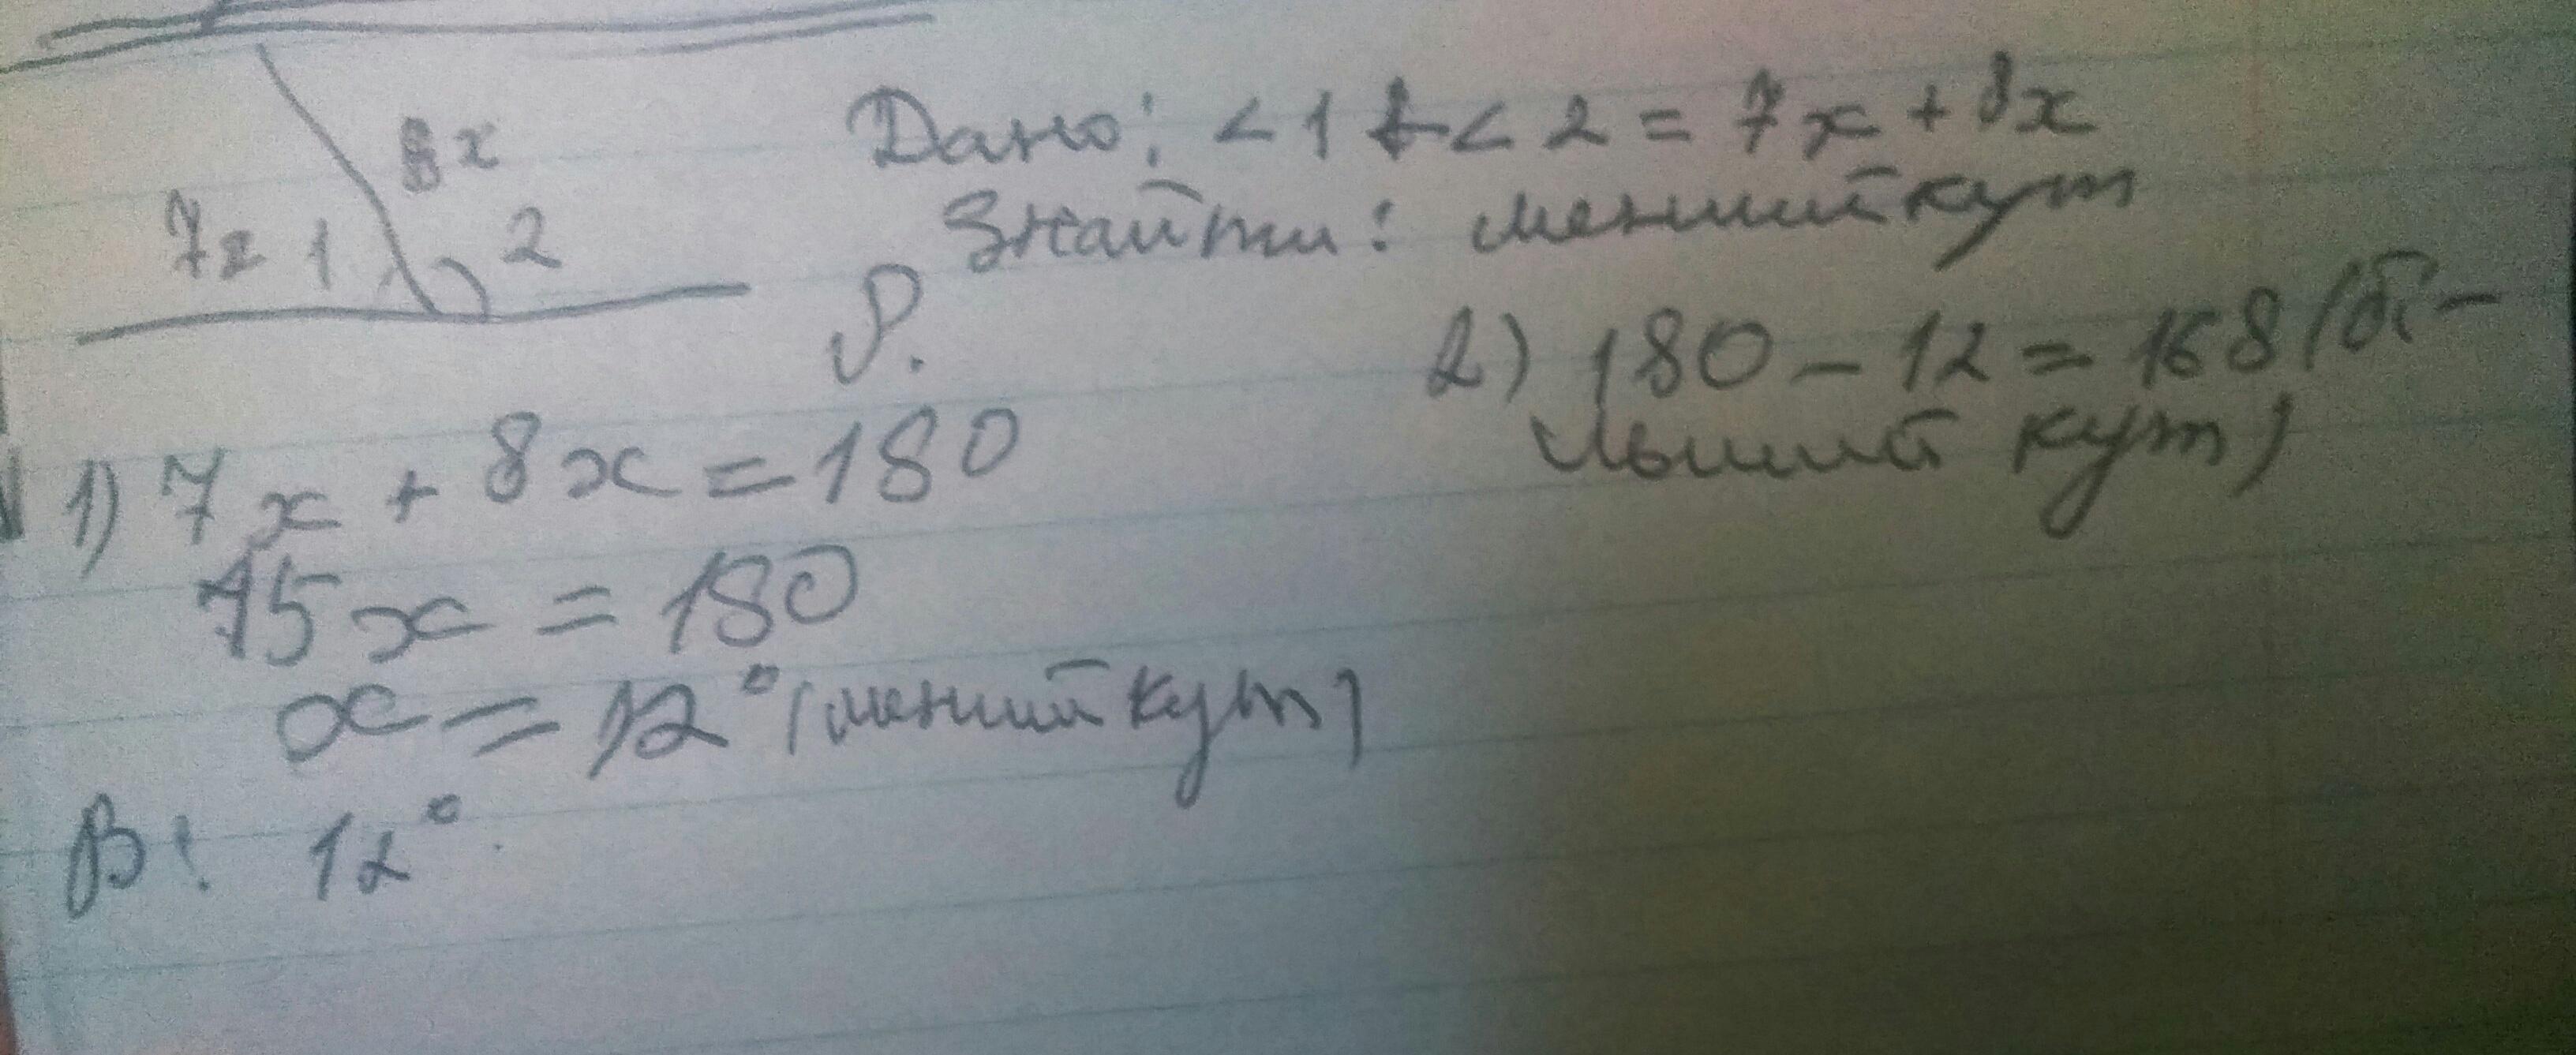 8x
7x 1 2
Дано: <1 + <2 = 7x + 8x
Знайти: менший кут
Р.
1) 7x + 8x = 180
15x = 180
x = 12° (менший кут)
В: 12°.
2) 180 - 12 = 168 (бі-
льший кут)